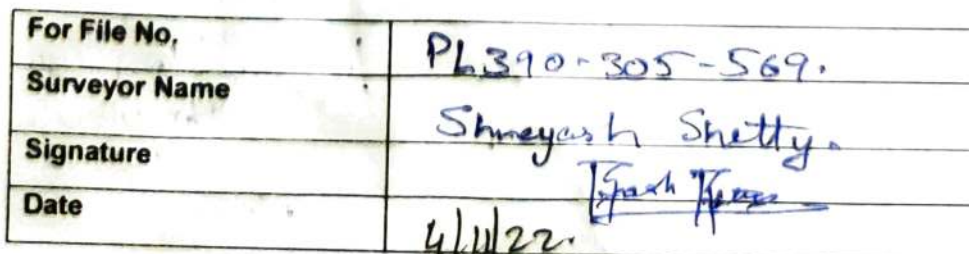 For File No. PL390-305-569.
Surveyor Name Shreyash Shetty.
Signature
Date 4/11/22.